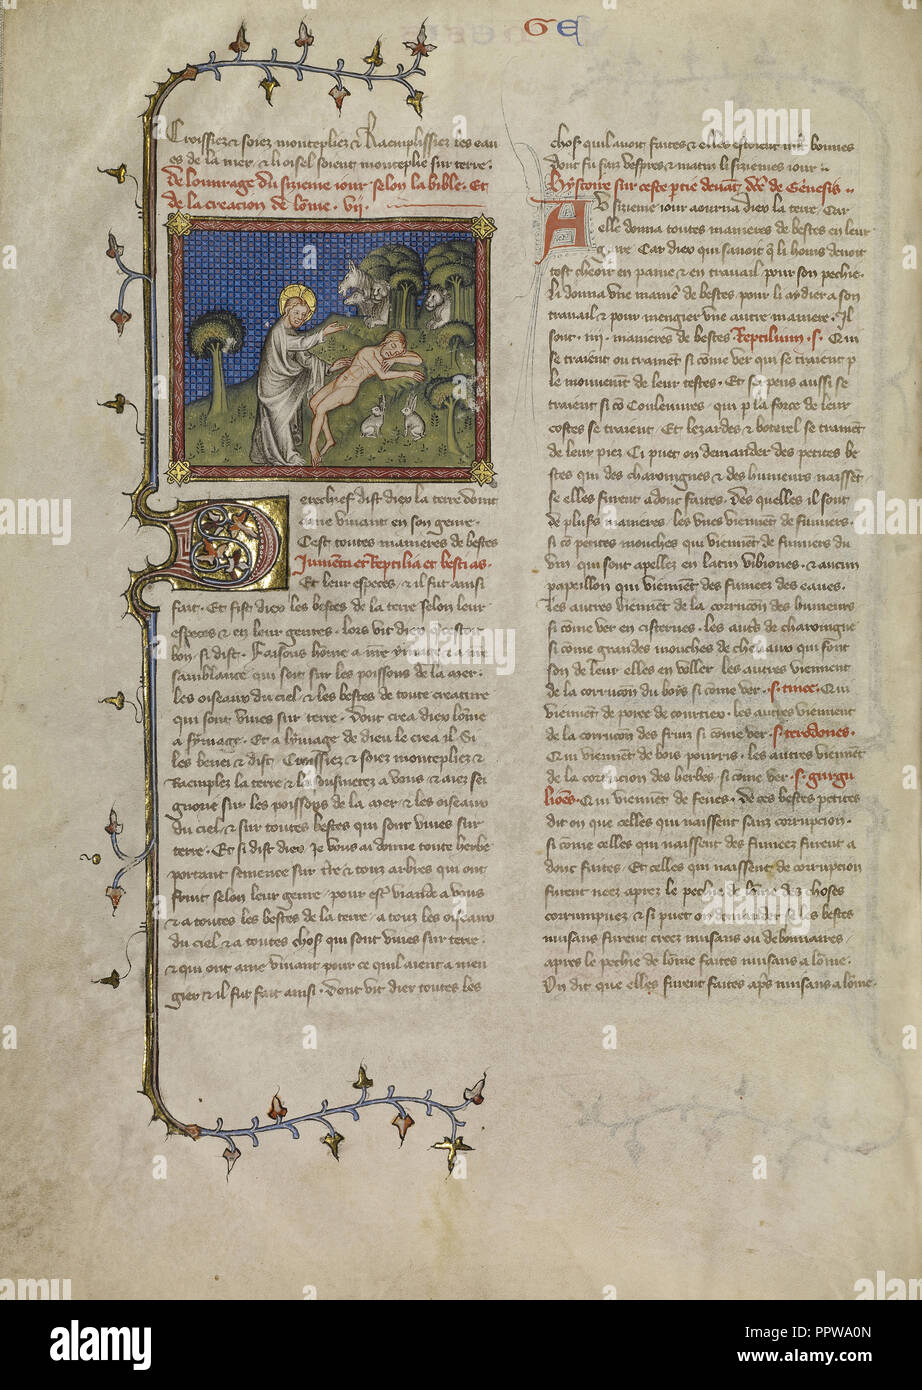 GE
Croissiez & soiez montepliez & Raemplissiez les eau
es de la mer, & li oisel soient monteplie sur terre.
De louvrage du sizieme iour selon la bible. Et
de la creacion de lome. vij.
Derechief dist dieu la terre doint
ame vivant en son genre.
Cest toutes manieres de bestes
Jumenta et Reptilia et bestias.
Et leur especes, & il fut ainsi
fait. Et fist dieu les bestes de la terre selon leur
especes & en leur gentes. Lors vit dieu que cestoit
bon, si dist. Faisons home a nre ymage & a nre
samblance qui soit sur les poissons de la mer.
les oiseaux du ciel, & les bestes de toute creature
qui sont vives sur terre. Dont crea dieu lome
a symage. Et a lymage de dieu le crea il. Si
les benei & dist, Croissiez & soiez monteplie &
Raemplez la terre & la sousmetez a vous & aiez sei
gnorie sur les poissons de la mer & les oiseaux
du ciel & sur toutes bestes qui sont vives sur
terre. Et si dist dieu Je vous ai donne toute herbe
portant semence sur tre & touz arbres qui ont
fruit selon leur genre, pour estre viande a vous
& a toutes les bestes de la terre, a touz les oiseaux
du ciel & a toutes chos qui sont vives sur terre.
& qui ont ame vivant pour ce quil aient a men
gier & il fut fait ainsi. Dont vit dieu toutes les
chos quil avoit faites & elles estoient mlt bonnes
Dont fu fait vespres & matin li sizieme iour.
Hystoire sur ceste ptie devant dce de Genesis.
Au sizieme iour aourna dieu la terre, Car
elle donna toutes manieres de bestes en leur
genre. Car dieu qui savoit que li homs devoit
tost cheoir en paine & en travail pour son pechie.
li donna une maniere de bestes pour li aydier a son
travail & pour mengier une autre maniere. Il
sont iij manieres de bestes Reptilium .s. Qui
se traient ou trainent si come ver qui se traient p
le mouvement de leur testes. Et serpens aussi se
traient si co Couleuvres, qui p la force de leur
costes se traient. Et lezardes & boterel se trainent
de leur piez Ci puet on demander des petites be
stes qui des charoingnes & des humeurs naissent
se elles furent adont faites. Des quelles il sont
de plusrs manieres, les unes viennent de fumiers.
si co petites mouches qui viennent de fumiers du
vin, qui sont apellez en latin vibiones. & aucun
papeillon qui viennent des fumeez des eaues.
Les autres viennent de la corrupcion des humeurs
si come ver en cisternes. les autres de charoingne
si come grandes mouches de chevaux qui font
son de leur elles en voller les autres viennent
de la corrupcion du bois si come ver .s. tince. Qui
viennent de poree de courtiex. les autres viennent
de la corrupcion des fruiz si come ver .s. teredones.
Qui viennent de bois pourris. les autres viennent
de la corrupcion des herbes si come ver .s. gurgu
liones. Qui viennent de feves. De ces bestes petites
dit on que celles qui naissent sanz corrupcion.
si come celles qui naissent des fumeez furent a
donc faites. Et celles qui naissent de corrupcion
furent neez aprez le pechie de lome dez choses
corrumpuez & si puet on demander se les bestes
nuisans furent creez nuisans ou debonnaires,
apres le pechie de lome faites nuisans a lome.
On dit que elles furent faites aps nuisans a lome.
alamy
Image ID: PPWA0N
www.alamy.com